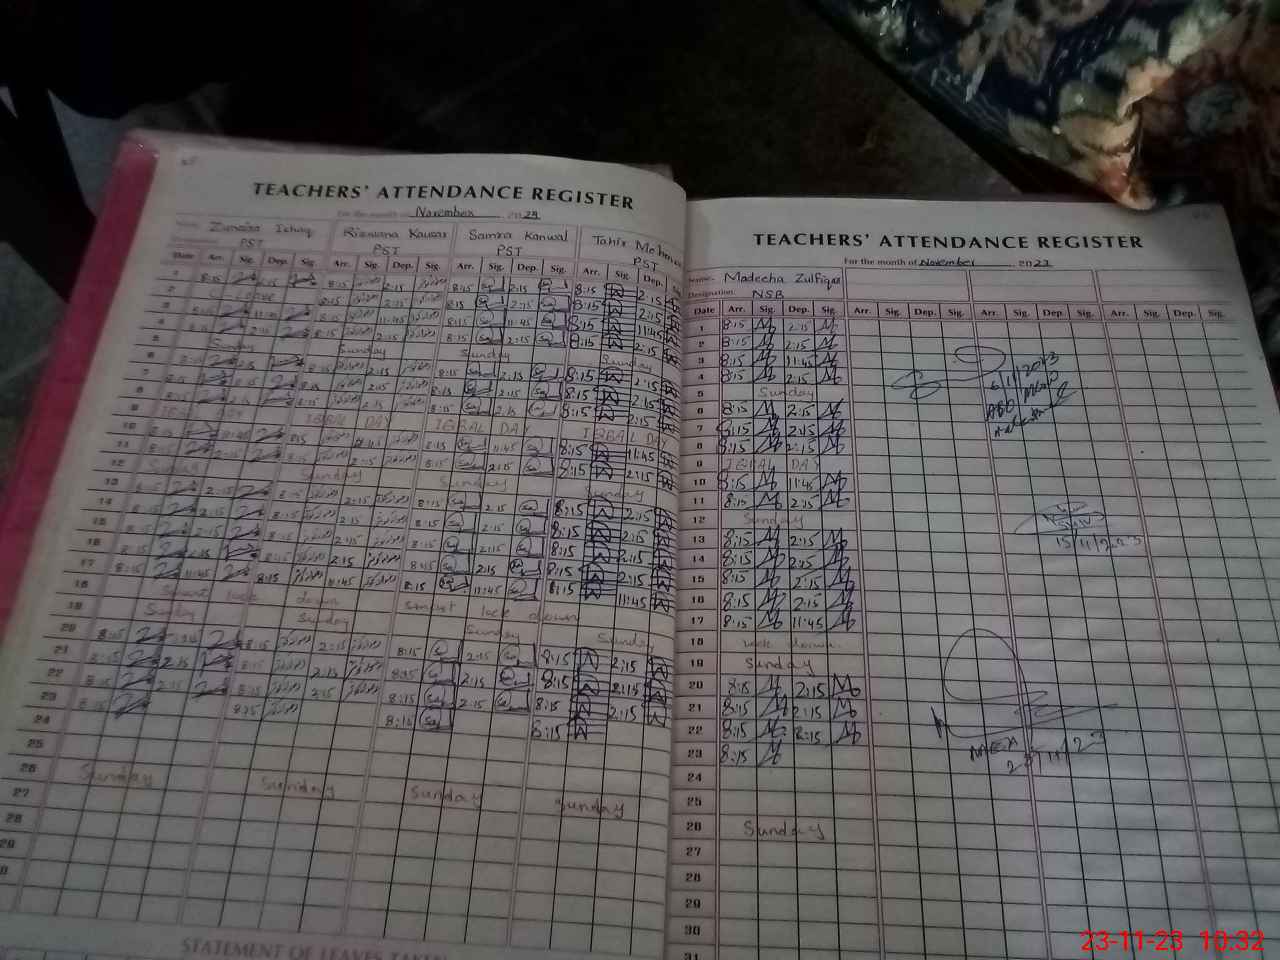 TEACHERS' ATTENDANCE REGISTER
For the month of November 2023
Zunaira Ishaq Rizwana Kausar Samra Kanwal Tahir Mehmo
PST PST PST PST
Date Arr. Sig. Dep. Sig. Arr. Sig. Dep. Sig. Arr. Sig. Dep. Sig. Arr. Sig. Dep.
1 8:15 2:15 8:15 2:15 8:15 2:15 8:15 2:15
2 Leave 8:15 2:15 8:15 2:15 8:15 2:15
3 8:15 11:45 8:15 11:45 8:15 11:45 8:15 11:45
4 8:15 2:15 8:15 2:15 8:15 2:15 8:15 2:15
5 Sunday Sunday Sunday Sunday
6 8:15 2:15 8:15 2:15 8:15 2:15 8:15 2:15
7 8:15 2:15 8:15 2:15 8:15 2:15 8:15 2:15
8 8:15 2:15 8:15 2:15 8:15 2:15 8:15 2:15
9 IQBAL DAY IQBAL DAY IQBAL DAY IQBAL DAY
10 8:15 11:45 8:15 11:45 8:15 11:45 8:15 11:45
11 8:15 2:15 8:15 2:15 8:15 2:15 8:15 2:15
12 Sunday Sunday Sunday Sunday
13 8:15 2:15 8:15 2:15 8:15 2:15 8:15 2:15
14 8:15 2:15 8:15 2:15 8:15 2:15 8:15 2:15
15 8:15 2:15 8:15 2:15 8:15 2:15 8:15 2:15
16 8:15 2:15 8:15 2:15 8:15 2:15 8:15 2:15
17 8:15 11:45 8:15 11:45 8:15 11:45 8:15 11:45
18 Smart lock down Smart lock down
19 Sunday Sunday Sunday Sunday
20 8:15 8:15 2:15 8:15 2:15 8:15 2:15
21 8:15 2:15 8:15 2:15 8:15 2:15 8:15 2:15
22 8:15 2:15 8:15 2:15 8:15 2:15 8:15 2:15
23 8:15 8:15 8:15 8:15
24
25
26 Sunday Sunday Sunday Sunday
27
28
29
STATEMENT OF LEAVES TAKEN
TEACHERS' ATTENDANCE REGISTER
For the month of November 2023
Name: Madeeha Zulfiqar
Designation: NSB
Date Arr. Sig. Dep. Sig. Arr. Sig. Dep. Sig. Arr. Sig. Dep. Sig. Arr. Sig. Dep. Sig.
1 8:15 2:15
2 8:15 2:15
3 8:15 11:45
4 8:15 2:15
5 Sunday
6 8:15 2:15
7 8:15 2:15
8 8:15 2:15
9 IQBAL DAY
10 8:15 11:45
11 8:15 2:15
12 Sunday
13 8:15 2:15
14 8:15 2:15
15 8:15 2:15
16 8:15 2:15
17 8:15 11:45
18 lock down
19 Sunday
20 8:15 2:15
21 8:15 2:15
22 8:15 2:15
23 8:15
24
25
26 Sunday
27
28
29
30
31
6/11/2023
AEO
15/11/2023
MEA
23-11-23 10:32